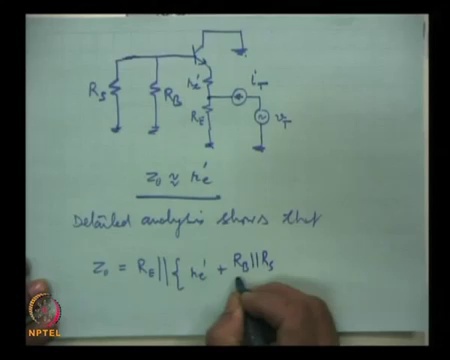 R_S
R_B
r_e'
R_E
i_T
v_T
z_o ≈ r_e'
Detailed analysis shows that
z_o = R_E || { r_e' + R_B || R_S
NPTEL